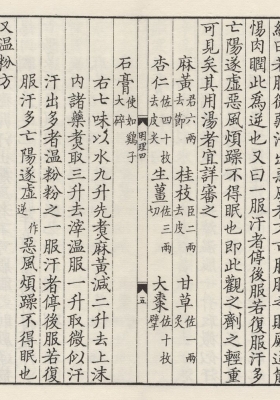 惕肉瞤此爲逆也又曰一服汗者停後服若復服汗多
亡陽遂虛惡風煩躁不得眠也即此觀之劑之輕重
可見矣其用湯者宜詳審之
麻黃君六兩去節 桂枝臣二兩去皮 甘草佐一兩炙
杏仁佐四十枚去皮尖 生薑佐三兩切 大棗佐十枚擘
石膏使如鷄子大碎
明理四 五
右七味以水九升先煮麻黃減二升去上沫
內諸藥煮取三升去滓溫服一升取微似汗
汗出多者溫粉粉之一服汗者停後服若復
服汗多亡陽遂虛一作逆惡風煩躁不得眠也
又溫粉方